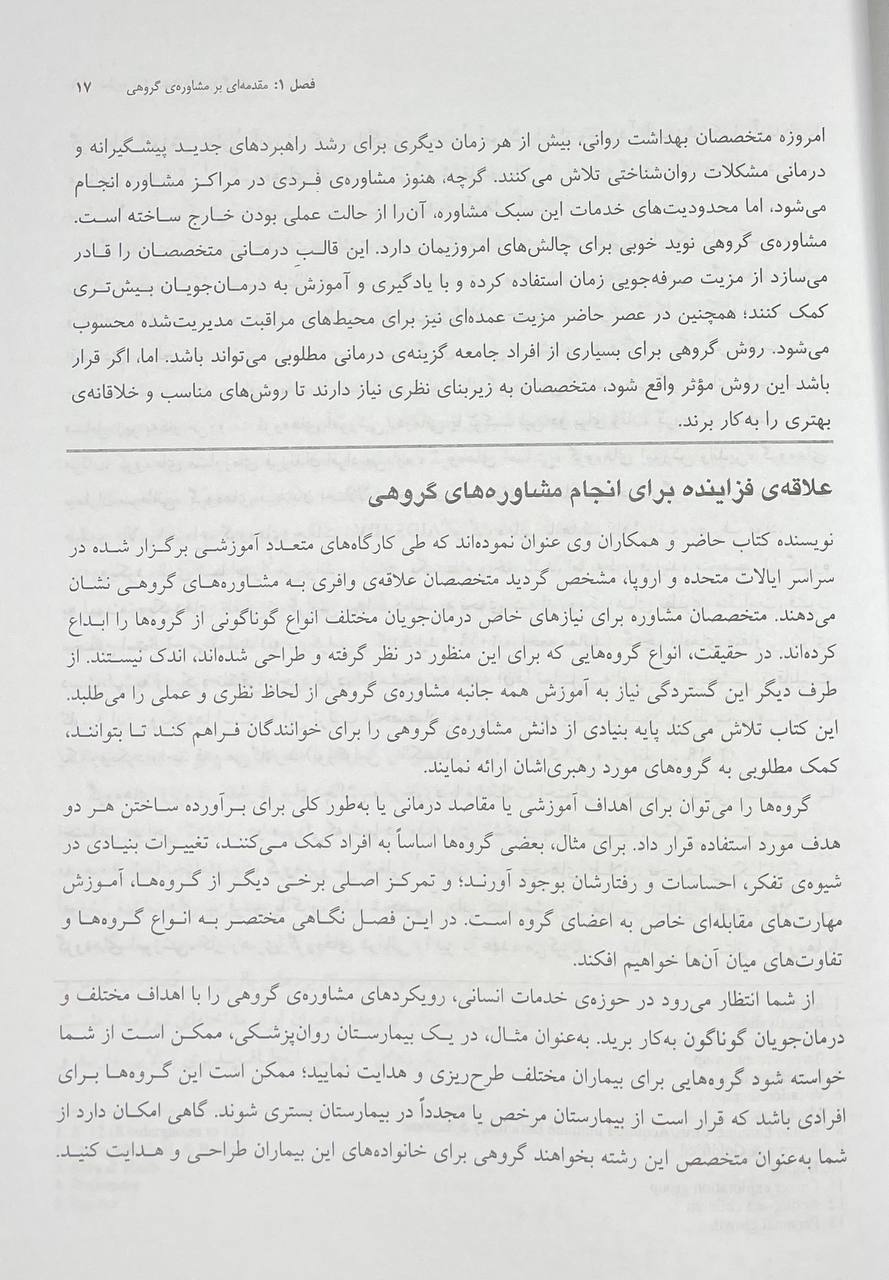 فصل ۱: مقدمه‌ای بر مشاوره‌ی گروهی ۱۷
امروزه متخصصان بهداشت روانی، بیش از هر زمان دیگری برای رشد راهبردهای جدید پیشگیرانه و
درمانی مشکلات روان‌شناختی تلاش می‌کنند. گرچه، هنوز مشاوره‌ی فردی در مراکز مشاوره انجام
می‌شود، اما محدودیت‌های خدمات این سبک مشاوره، آن‌را از حالت عملی بودن خارج ساخته است.
مشاوره‌ی گروهی نوید خوبی برای چالش‌های امروزیمان دارد. این قالبِ درمانی متخصصان را قادر
می‌سازد از مزیت صرفه‌جویی زمان استفاده کرده و با یادگیری و آموزش به درمان‌جویان بیش‌تری
کمک کنند؛ همچنین در عصر حاضر مزیت عمده‌ای نیز برای محیط‌های مراقبت مدیریت‌شده محسوب
می‌شود. روش گروهی برای بسیاری از افراد جامعه گزینه‌ی درمانی مطلوبی می‌تواند باشد. اما، اگر قرار
باشد این روش مؤثر واقع شود، متخصصان به زیربنای نظری نیاز دارند تا روش‌های مناسب و خلاقانه‌ی
بهتری را به‌کار برند.
علاقه‌ی فزاینده برای انجام مشاوره‌های گروهی
نویسنده کتاب حاضر و همکاران وی عنوان نموده‌اند که طی کارگاه‌های متعدد آموزشی برگزار شده در
سراسر ایالات متحده و اروپا، مشخص گردید متخصصان علاقه‌ی وافری به مشاوره‌های گروهی نشان
می‌دهند. متخصصان مشاوره برای نیازهای خاص درمان‌جویان مختلف انواع گوناگونی از گروه‌ها را ابداع
کرده‌اند. در حقیقت، انواع گروه‌هایی که برای این منظور در نظر گرفته و طراحی شده‌اند، اندک نیستند. از
طرف دیگر این گستردگی نیاز به آموزش همه جانبه مشاوره‌ی گروهی از لحاظ نظری و عملی را می‌طلبد.
این کتاب تلاش می‌کند پایه بنیادی از دانش مشاوره‌ی گروهی را برای خوانندگان فراهم کند تا بتوانند،
کمک مطلوبی به گروه‌های مورد رهبری‌اشان ارائه نمایند.
گروه‌ها را می‌توان برای اهداف آموزشی یا مقاصد درمانی یا به‌طور کلی برای برآورده ساختن هر دو
هدف مورد استفاده قرار داد. برای مثال، بعضی گروه‌ها اساساً به افراد کمک می‌کنند، تغییرات بنیادی در
شیوه‌ی تفکر، احساسات و رفتارشان بوجود آورند؛ و تمرکز اصلی برخی دیگر از گروه‌ها، آموزش
مهارت‌های مقابله‌ای خاص به اعضای گروه است. در این فصل نگاهی مختصر به انواع گروه‌ها و
تفاوت‌های میان آن‌ها خواهیم افکند.
از شما انتظار می‌رود در حوزه‌ی خدمات انسانی، رویکردهای مشاوره‌ی گروهی را با اهداف مختلف و
درمان‌جویان گوناگون به‌کار برید. به‌عنوان مثال، در یک بیمارستان روان‌پزشکی، ممکن است از شما
خواسته شود گروه‌هایی برای بیماران مختلف طرح‌ریزی و هدایت نمایید؛ ممکن است این گروه‌ها برای
افرادی باشد که قرار است از بیمارستان مرخص یا مجدداً در بیمارستان بستری شوند. گاهی امکان دارد از
شما به‌عنوان متخصص این رشته بخواهند گروهی برای خانواده‌های این بیماران طراحی و هدایت کنید.